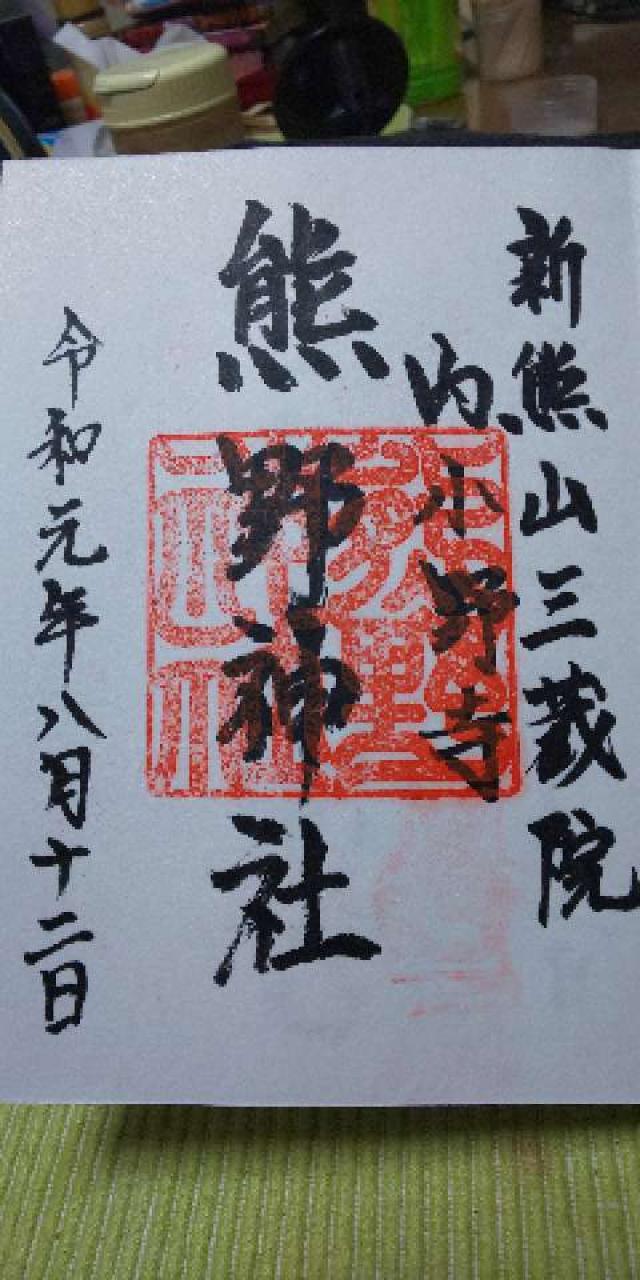 新熊山三蔵院
内小野寺
熊野神社
令和元年八月十二日